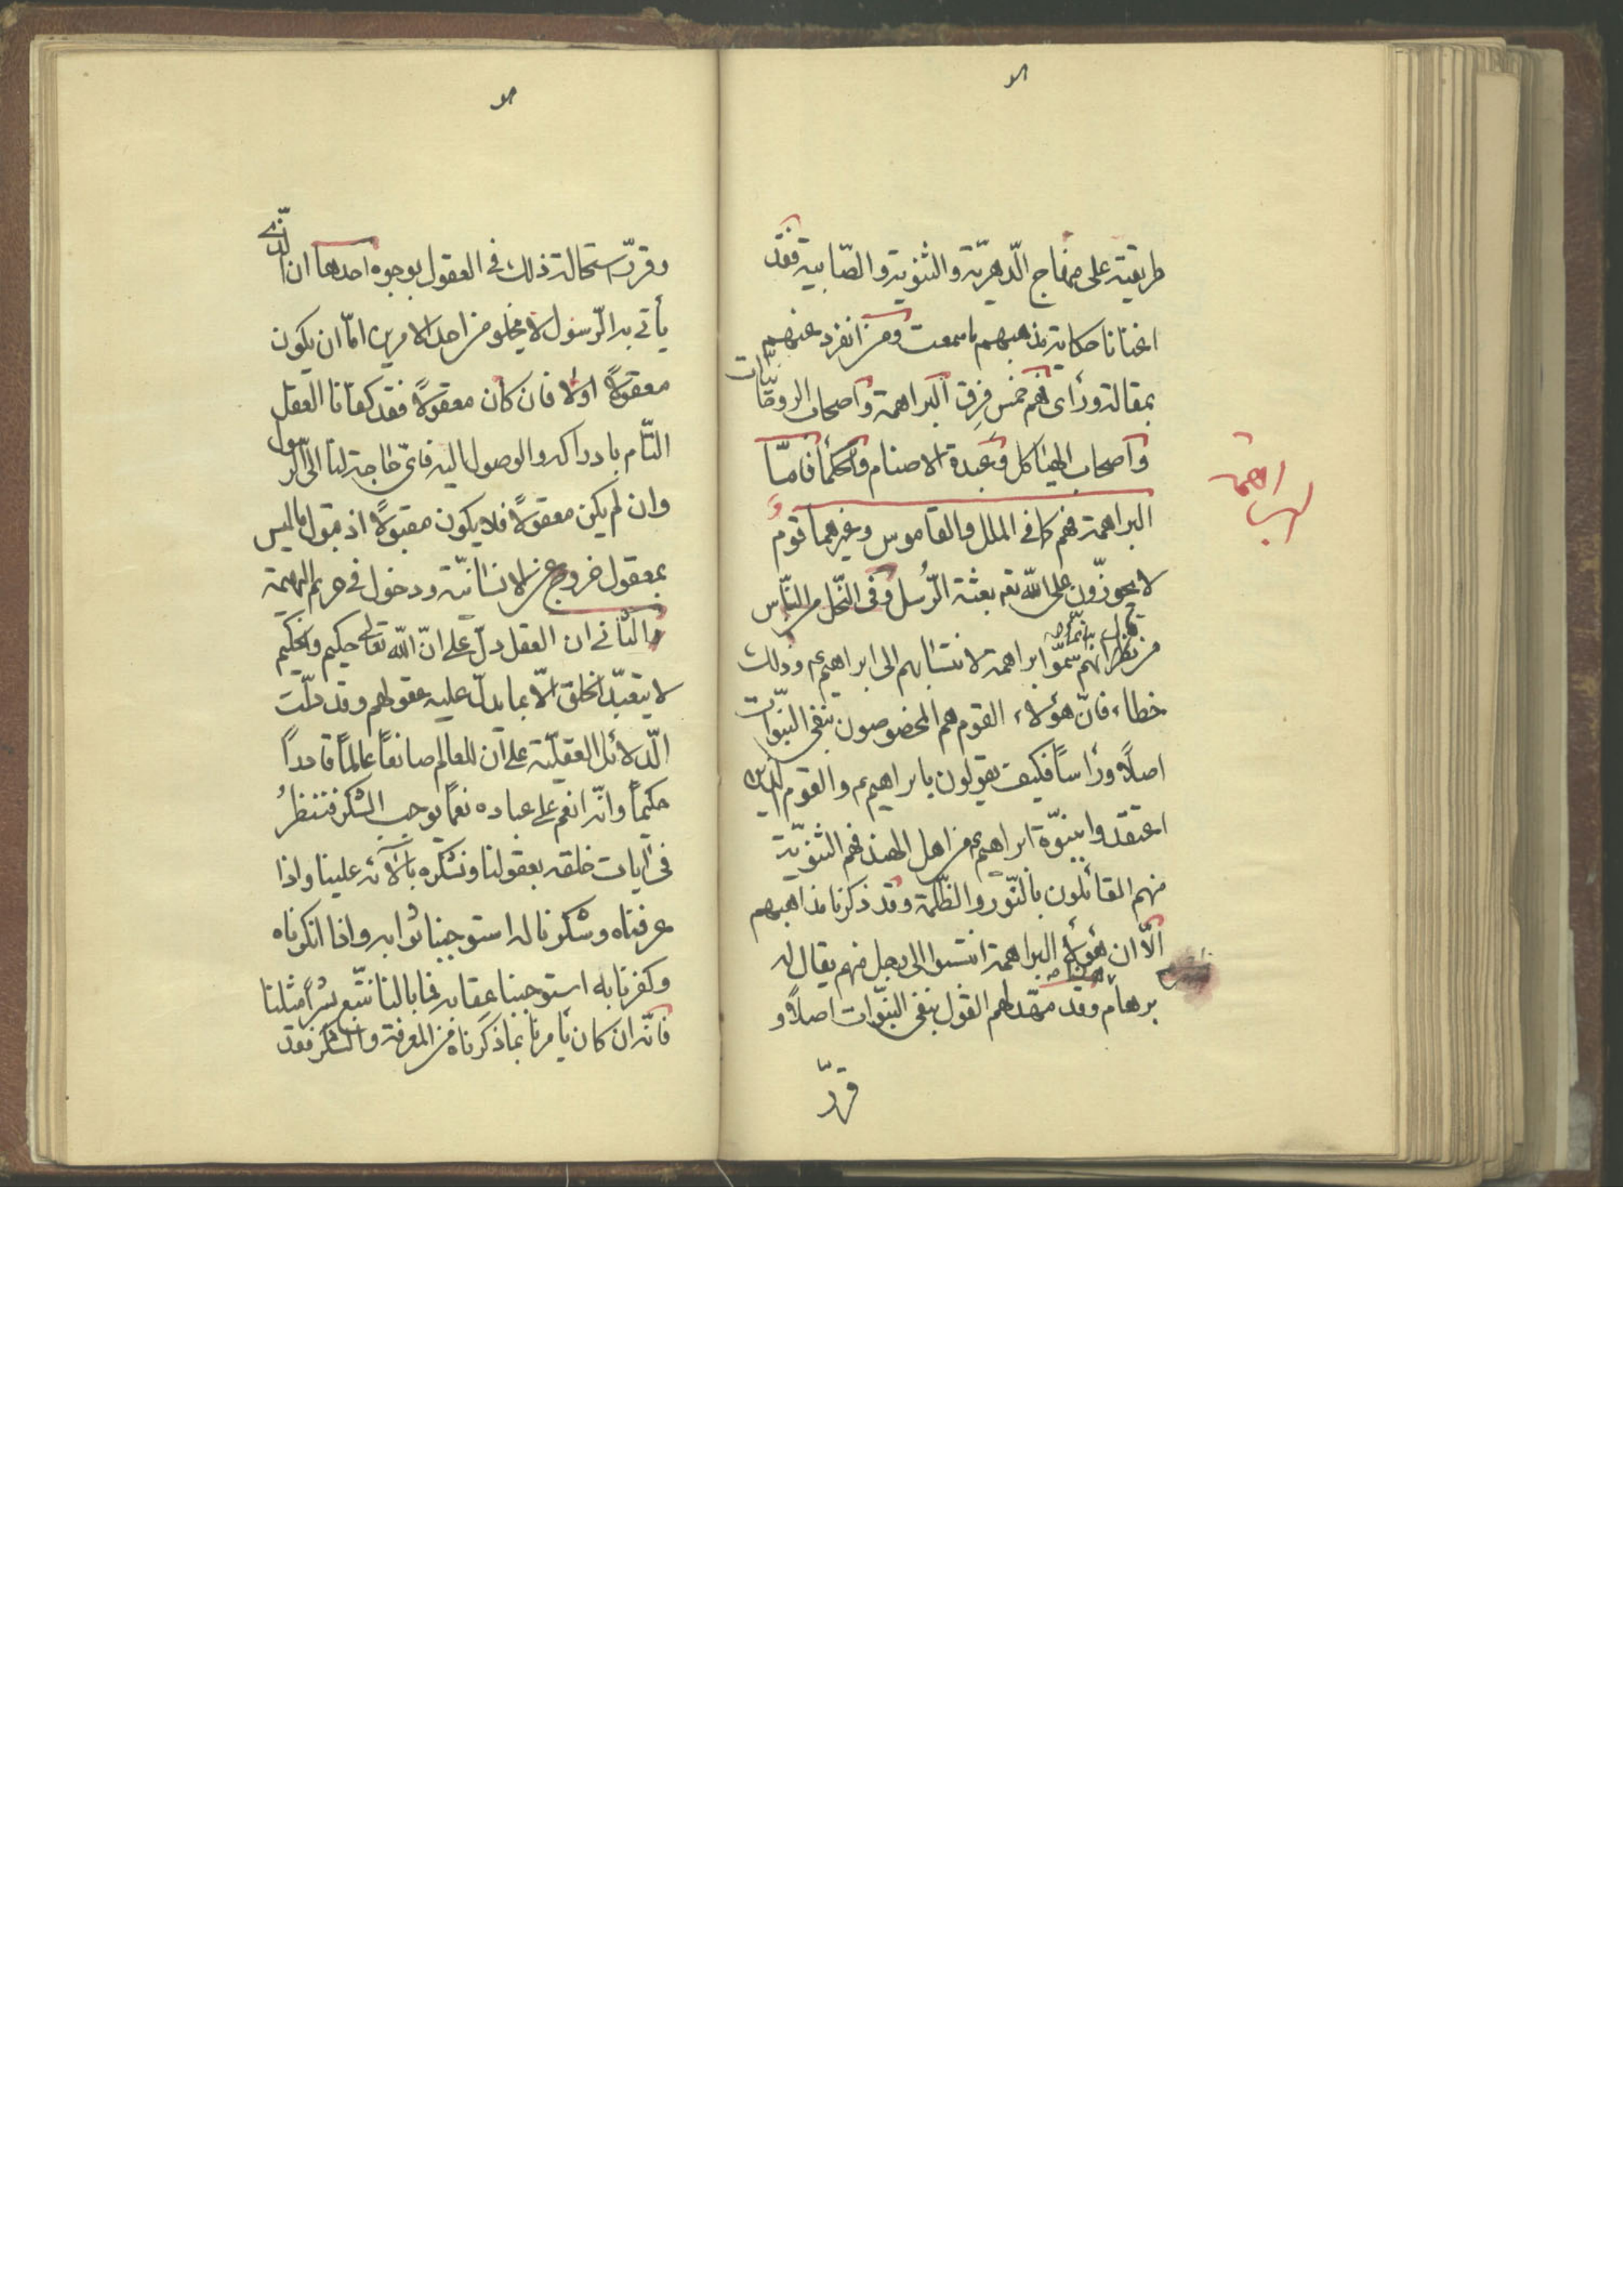 طريقية على منهاج الدّهريّة والثنوية والصّابية فقد
اغنانا حكاية مذهبهم ما سمعت ومن انفرد عنهم
بمقالة ورأى فهم خمس فرق البراهمة واصحاب الروحّانيّات
واصحاب الهياكل وعبدة الاصنام والحكمأ فامّا
البراهمة فهم كما فى الملل والقاموس وغيرهما قوم
لا يجوزّون على اللّه تعم بعثة الرّسل وفى النّحل من النّاس
من يظن انهم سمّوا براهمة لانتسابهم الى ابراهيم ع وذلك
خطاء فانّ هؤلاء القوم هم المخصوصون بنفى النبوّات
اصلاً ورأساً فكيف يقولون بابراهيم ع والقوم الذين
اعتقدوا بنبوّة ابراهيم ع من اهل الهند فهم الثنويّة
منهم القائلون بالنّور والظّلمة وقد ذكرنا مذاهبهم
الّا ان هؤلأ البراهمة انتسبوا الى رجل منهم يقال له
برهام وقد مهّد لهم القول بنفى النبوّات اصلاً و
قرّر
البراهمة
وقرّر استحالة ذلك فى العقول بوجوه احدها ان الذّى
يأتى به الرّسول لا يخلو من احد الامرين امّا ان يكون
معقولاً او لا فان كان معقولاً فقد كفانا العقل
التّام بادراكه والوصول اليه فاىّ حاجة لنا الى الرّسول
وان لم يكن معقولاً فلا يكون مقبولاً اذ قبول ما ليس
بمعقول خروج عن الانسانيّة ودخول فى حريم البهيمة
والثّانى ان العقل دلّ على انّ اللّه تعالى حكيم والحكيم
لا يتعبّد الخلق الّا بما يدلّ عليه عقولهم وقد دلّت
الدّلائل العقليّة على ان للعالم صانعاً عالماً قادراً
حكيماً وانّه انعم على عباده نعماً يوجب الشكر فننظرُ
فى آيات خلقه بعقولنا ونشكره بآلائه علينا واذا
عرفناه وشكرنا له استوجبنا ثوابه واذا انكرناه
وكفرنا به استوجبنا عقابه فما بالنا نتّبع بشراً مثلنا
فانّه ان كان يأمرنا بما ذكرناه من المعرفة والشكر فقد